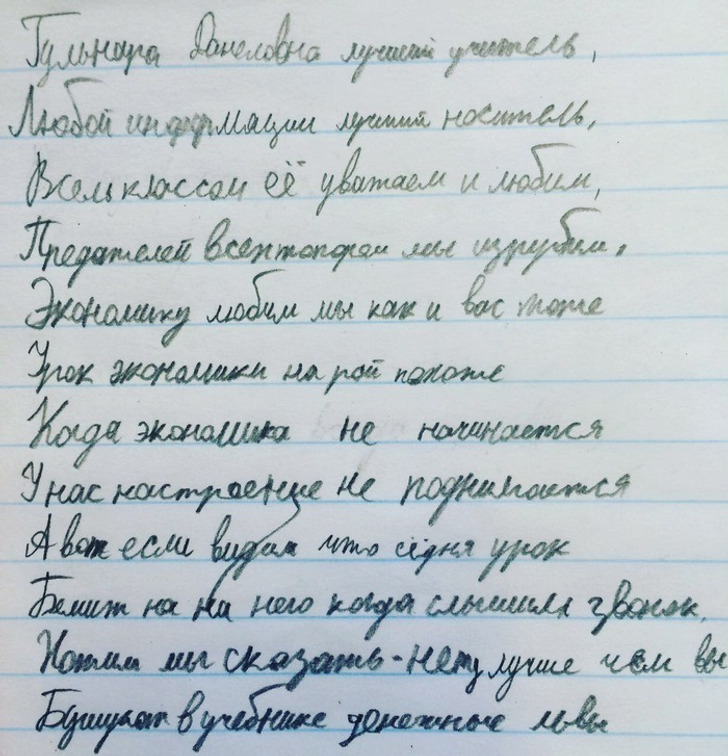 Гульнара Данеловна лучший учитель,
Любой информации лучший носитель,
Всем классом её уважаем и любим,
Предателей всех топором мы изрубим.
Экономику любим мы как и вас тоже
Урок экономики на рай похоже
Когда экономика не начинается
У нас настроение не поднимается
А вот если видим что сёдня урок
Бежит на на него когда слышила звонок.
Хотим мы сказать - нету лучше чем вы
Бушуют в учебнике денежные львы